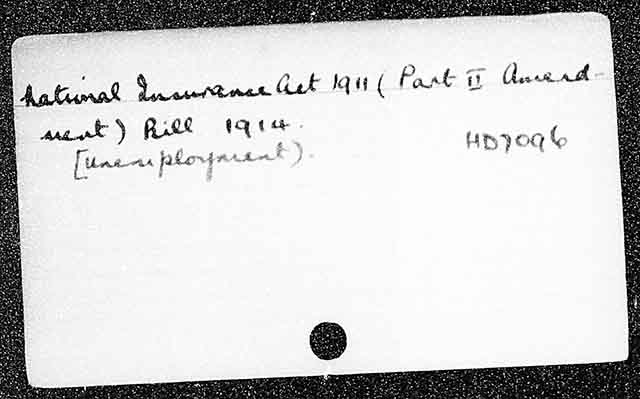 National Insurance Act 1911 (Part II Amend-
ment) Bill 1914.
[Unemployment).
HD7096